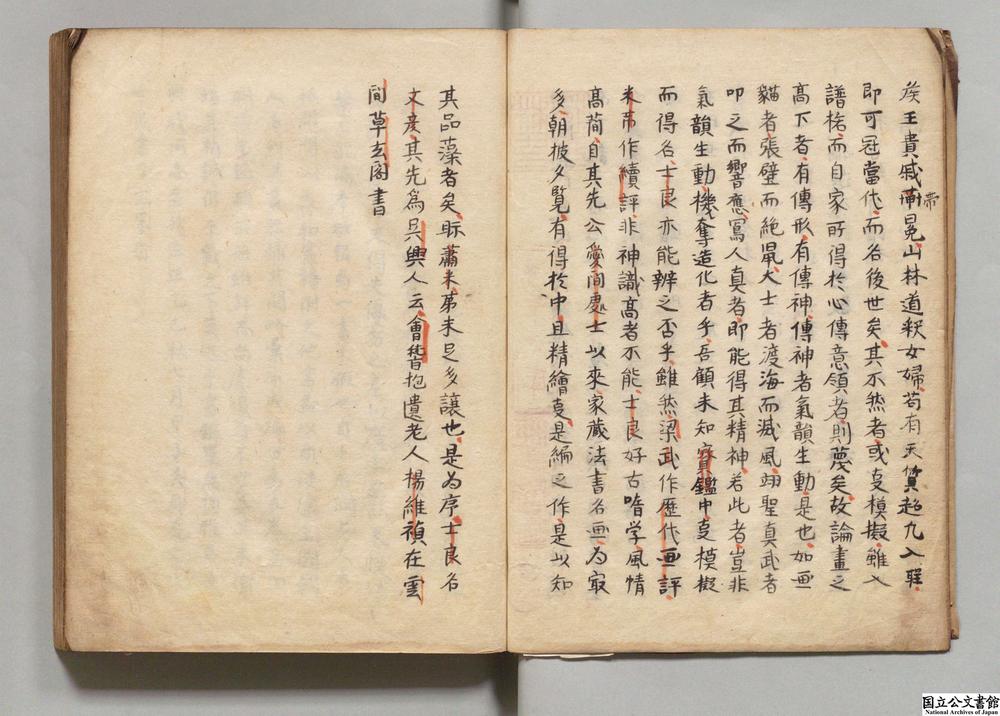 矦王貴戚軒冕山林道釈女婦苟有天質超九入聖
帯
即可冠當代而名後世矣其不然者或事模擬雖入
譜格而自家所得於心傳意領者則蔑矣故論畫之
高下者有傳形有傳神傳神者氣韻生動是也如画
貓者張壁而絶鼠大士者渡海而滅風翊聖真武者
叩之而響應寫人真者即能得其精神若此者豈非
氣韻生動機奪造化者乎吾顧未知寳鑑中事模擬
而得名士良亦能辨之否乎雖然梁武作歴代画評
米芾作續評非神識高者不能士良好古嗜学風情
高荷自其先公愛閒處士以來家蔵法書名画為冣
多朝披夕覧有得於中且精繪事是編之作是以知
其品藻者矣際蕭米弟未足多讓也是為序士良名
文彦其先為呉興人云會稽抱遺老人楊維禎在雲
間草玄閣書
国立公文書館
National Archives of Japan